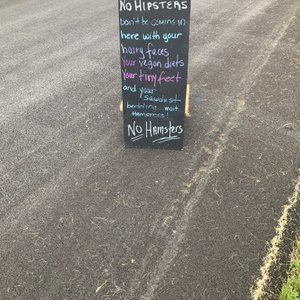 NO HIPSTERS
Don't be coming in
here with your
hairy faces
your vegan diets
your tiny feet
and your
sawdust
bedding... wait..
HAMSTERS!
No Hamsters